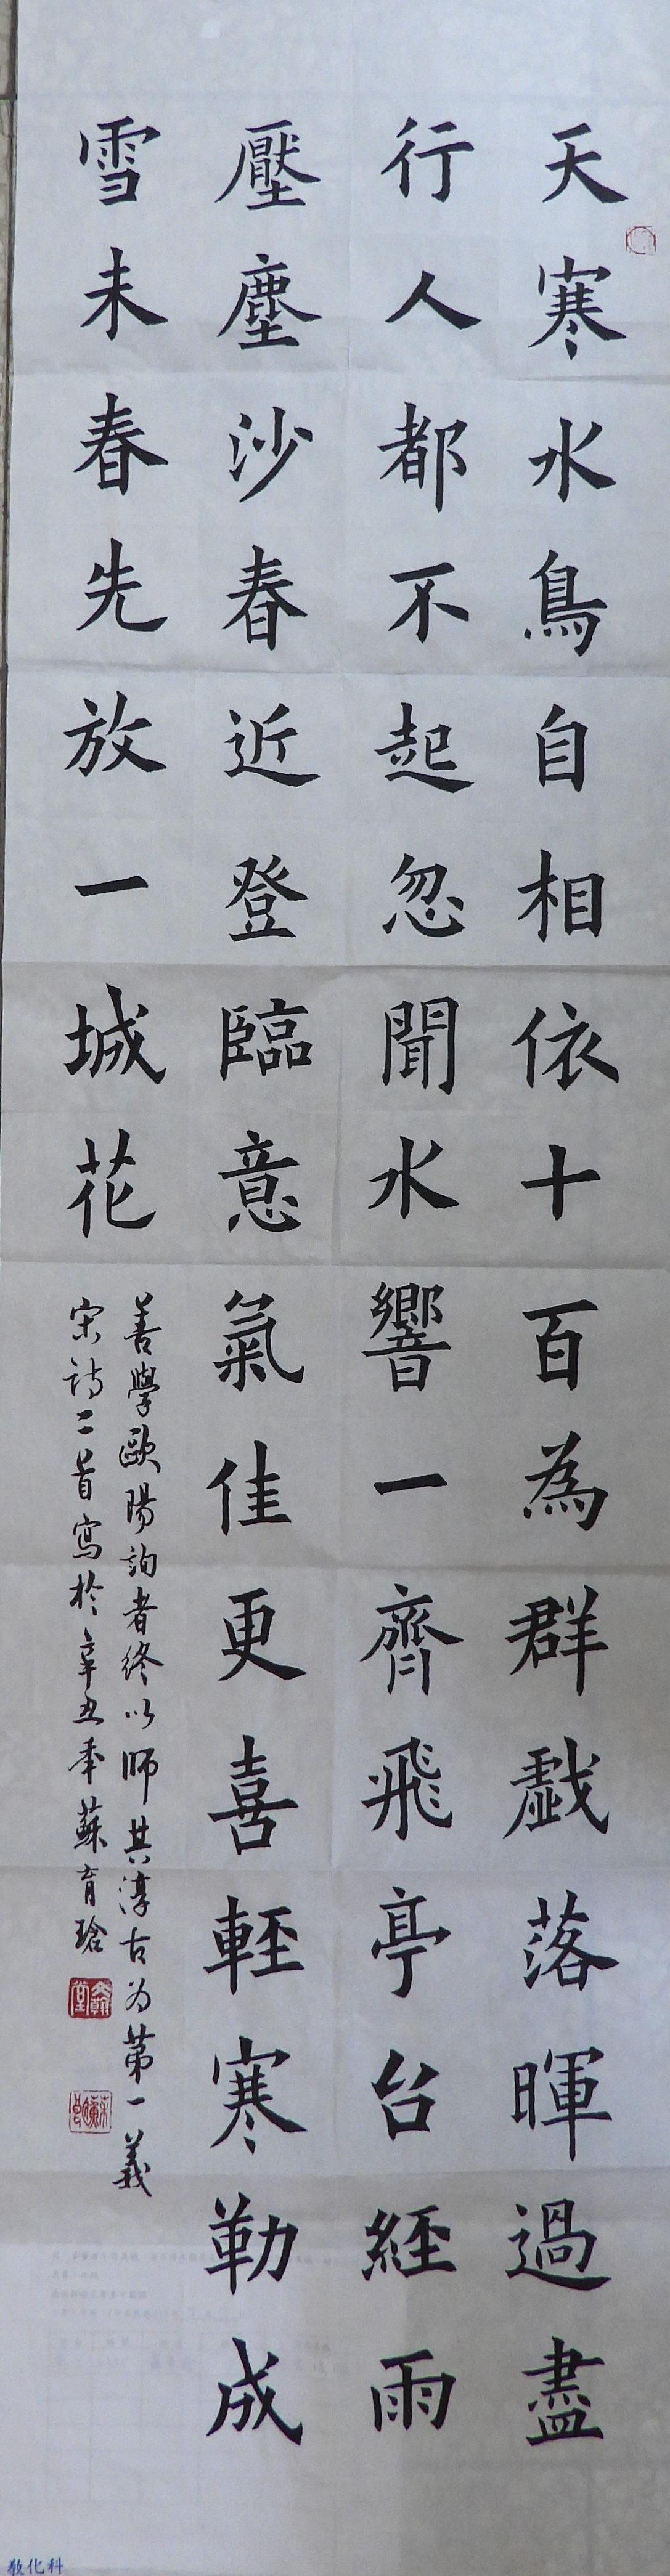 天寒水鳥自相依十百為群戯落暉過盡
行人都不起忽聞水響一齊飛亭台經雨
壓塵沙春近登臨意氣佳更喜輕寒勒成
雪未春先放一城花
善學歐陽詢者終以師其淳古为第一義
宋诗二首寫於辛丑年蘇育瑲
教化科